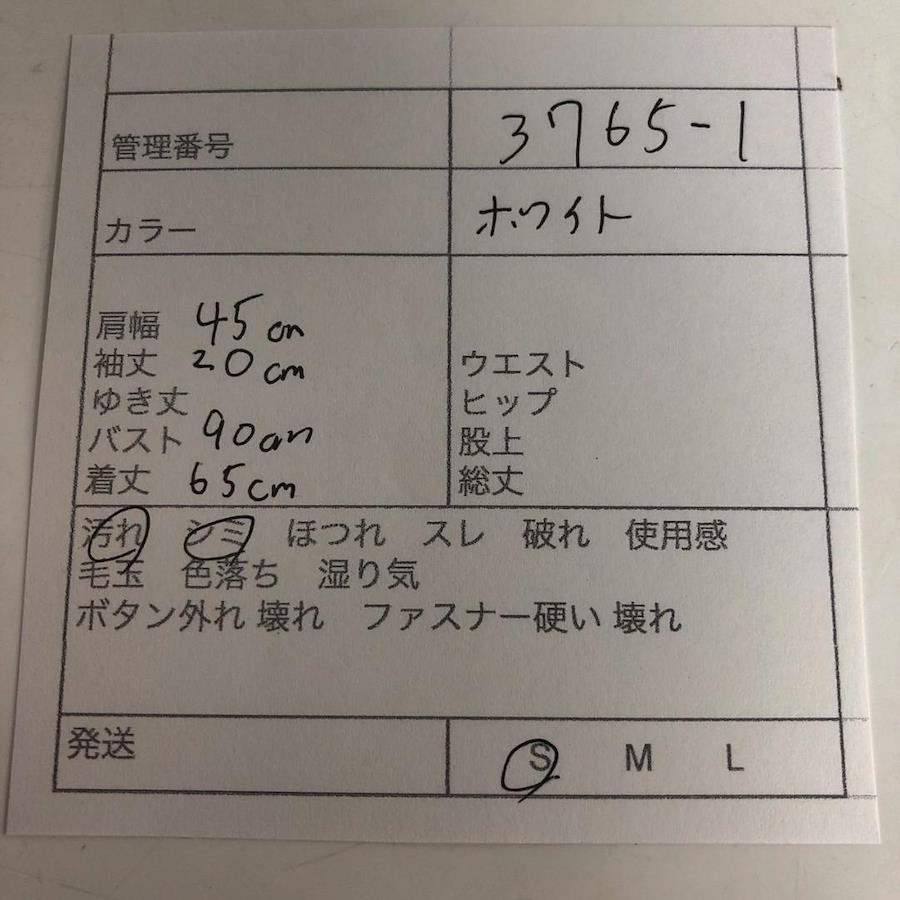 管理番号 3765-1
カラー ホワイト
肩幅 45cm
袖丈 20cm ウエスト
ゆき丈 ヒップ
バスト 90cm 股上
着丈 65cm 総丈
汚れ シミ ほつれ スレ 破れ 使用感
毛玉 色落ち 湿り気
ボタン外れ 壊れ ファスナー硬い 壊れ
発送 S M L